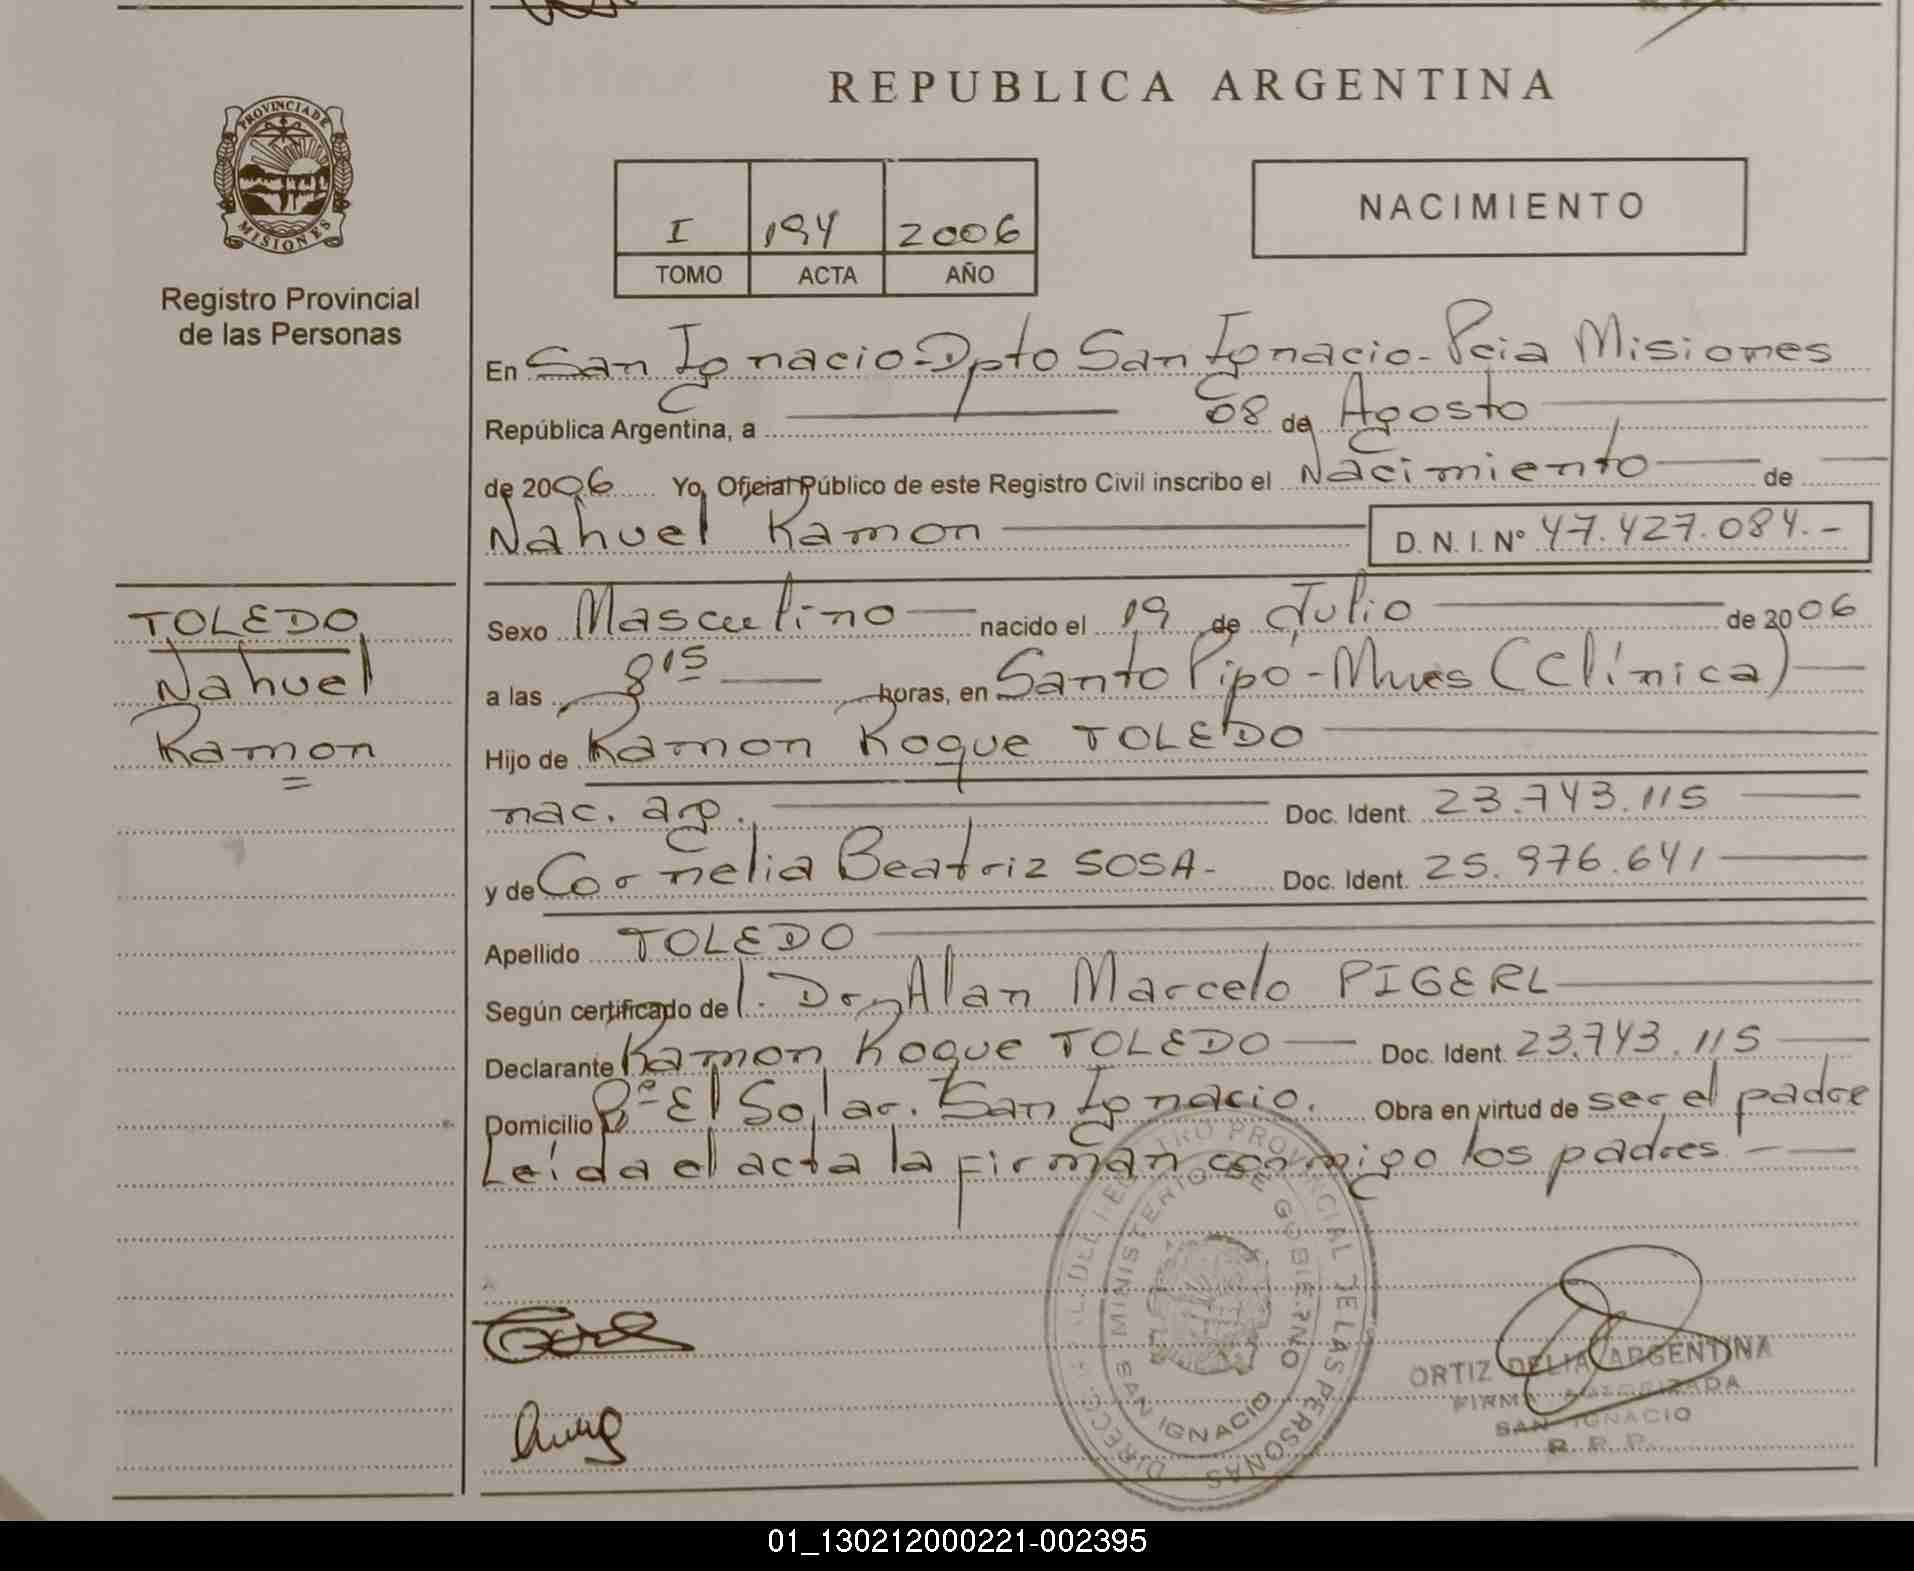 REPUBLICA ARGENTINA
PROVINCIA DE MISIONES
Registro Provincial
de las Personas
I 194 2006
TOMO ACTA AÑO
NACIMIENTO
En San Ignacio-Dpto San Ignacio-Pcia Misiones
República Argentina, a 08 de Agosto
de 2006 Yo, Oficial Público de este Registro Civil inscribo el Nacimiento de
Nahuel Ramon D. N. I. Nº 47.427.084.-
TOLEDO
Nahuel
Ramon
Sexo Masculino nacido el 19 de Julio de 2006
a las 8 15 horas, en Santo Pipó - Mnes (Clínica)
Hijo de Ramon Roque TOLEDO
nac. arg. Doc. Ident. 23.743.115
y de Cornelia Beatriz SOSA- Doc. Ident. 25.976.641
Apellido TOLEDO
Según certificado de l. Dr. Alan Marcelo PIGERL
Declarante Ramon Roque TOLEDO Doc. Ident. 23.743.115
Domicilio Bº El Solar. San Ignacio. Obra en virtud de ser el padre
Leída el acta la firman conmigo los padres
PROVINCIAL DE LAS PERSONAS
MINISTERIO DE GOBIERNO
SAN IGNACIO
ORTIZ DELIA ARGENTINA
FIRMA AUTORIZADA
SAN IGNACIO
R. P. P.
01_130212000221-002395